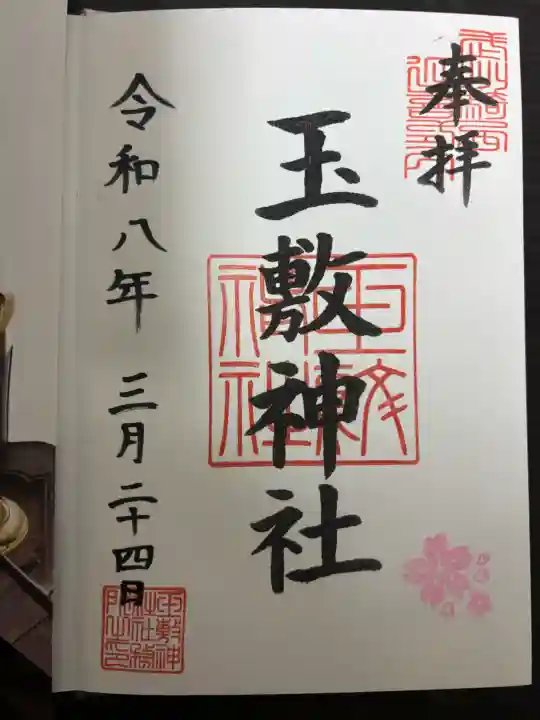 奉拝
玉敷神社
令和八年 三月二十四日
玉敷神社
玉敷神社社務所之印